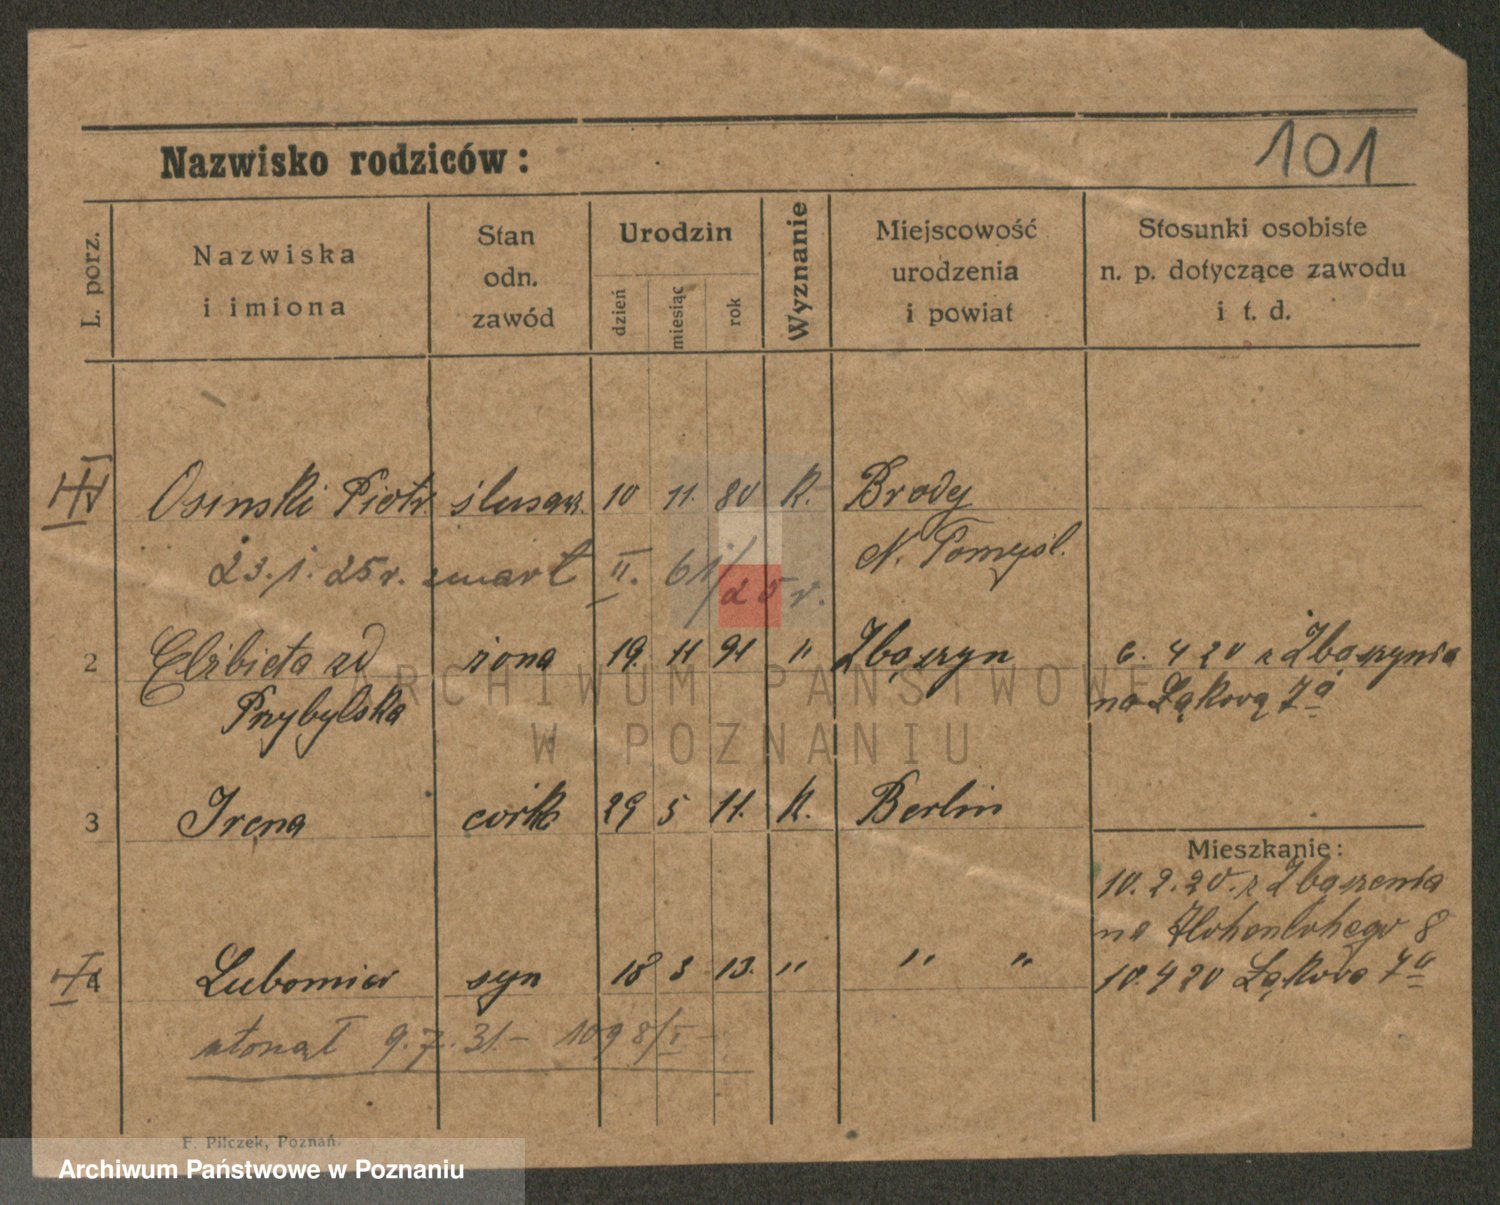 101
Nazwisko rodziców:
L. porz.
Nazwiska
i imiona
Stan
odn.
zawód
Urodzin
dzień
miesiąc
rok
Wyznanie
Miejscowość
urodzenia
i powiat
Stosunki osobiste
n. p. dotyczące zawodu
i t. d.
Osinski Piotr ślusarz. 10 11. 80 K. Brody
23.1.25r. zmarł II. 61/25 r. N. Tomyśl.
2 Elżbieta zd żona 19. 11 91 " Zbąszyn 6. 4 20 z Zbąszynia
Przybylska na Łąkową 7a
3 Irena córk 29 5 11. K. Berlin
Mieszkanie:
10. 2. 20. z Zbąszenia
na Hohenlohego 8
4 Lubomir syn 18 3 13. " " " 10. 4 20 Łąkova 7a
utonął 9.7.31.- 1098/I-
F. Pilczek, Poznań.
ARCHIWUM PAŃSTWOWE
W POZNANIU
Archiwum Państwowe w Poznaniu